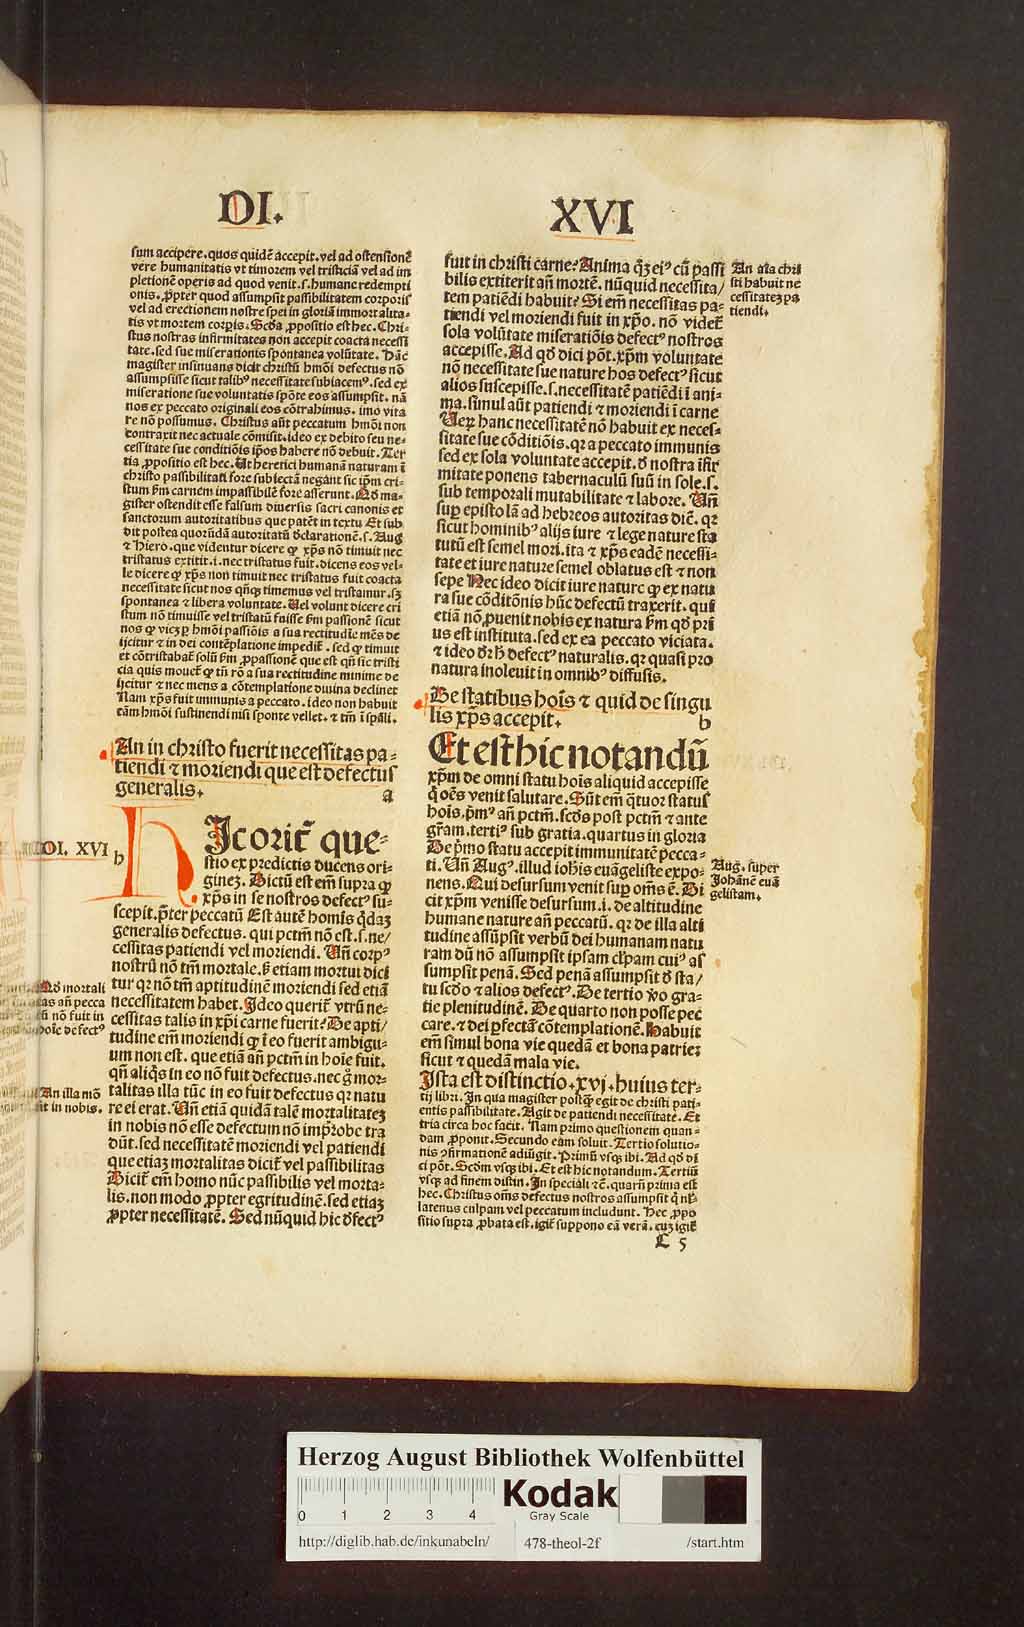 DI.
XVI
sum accipere.quos quidē accepit.vel ad ostensionē
vere humanitatis vt timorem vel tristiciā vel ad im
pletionē operis ad quod venit.s.humane redempti
onis.ꝓpter quod assumpsit passibilitatem corporis
vel ad erectionem nostre spei in gloriā immortalita-
tis vt mortem corpis. Scďa ꝓpositio est hec. Chri-
stus nostras infirmitates non accepit coacta necessi
tate.sed sue miserationis spontanea volūtate. Hāc
magister insinuans dicit christū hmōi defectus nō
assumpsisse sicut talibꝰ necessitate subiacemꝰ.sed ex
miseratione sue voluntatis spōte eos assumpsit. nā
nos ex peccato originali eos cōtrahimus. imo vita
re nō possumus. Christus aūt peccatum hmōi non
contraxit nec actuale cōmisit.ideo ex debito seu ne-
cessitate sue conditiōis ip̄os habere nō debuit. Ter
tia ꝓpositio est hec. Ut heretici humanā naturam ī
christo passibilitati fore subiectā negant sic ip̄m cri-
stum ẜm carnem impassibilē fore asserunt. Qđ ma-
gister ostendit esse falsum diuersis sacri canonis et
sanctorum autoritatibus que patēt in textu Et sub
dit postea quorūdā autoritatū ďclarationē.s. Aug
⁊ Hiero.que videntur dicere ꝙ xp̄s nō timuit nec
tristatus extitit.i.nec tristatus fuit.dicens eos vel-
le dicere ꝙ xp̄s non timuit nec tristatus fuit coacta
necessitate sicut nos qn̄qꝫ timemus vel tristamur.sꝫ
spontanea ⁊ libera voluntate. Uel volunt dicere cri
stum nō timuisse vel tristatū fuisse ẜm passionē sicut
nos ꝙ vicꝫ ꝑ hmōi passiōis a sua rectitudīe mēs de
ijcitur ⁊ in dei contēplatione impediť. sed ꝙ timuit
et cōtristabať solū ẜm ꝓpassionē que est qn̄ sic tristi
cia quis mouet ꝙ tn̄ rō a sua rectitudine minime de
ijcitur ⁊ nec mens a cōtemplatione diuina declinet
Nam xp̄s fuit immunis a peccato.ideo non habuit
cām hmōi sustinendi nisi sponte vellet. ⁊ tm̄ ī sp̄āli.
An in christo fuerit necessitas pa-
tiendi ⁊ moriendi que est defectus
generalis.
a
DI. XVI
h
HIc oriť que-
stio ex predictis ducens ori-
ginez. Dictū est em̄ supra ꝙ
xp̄s in se nostros defectꝰ su-
scepit.p̄ter peccatū Est autē homis q̄daꝫ
generalis defectus. qui pctm̄ nō est.s.ne/
cessitas patiendi vel moriendi. Un̄ corpꝰ
nostrū nō tm̄ mortale.ẜ etiam mortui dici
tur qꝛ nō tm̄ aptitudinē moriendi sed etiā
necessitatem habet. Ideo queriť vtrū ne-
cessitas talis in xp̄i carne fuerit? De apti/
tudine em̄ moriendi ꝙ ī eo fuerit ambigu-
um non est. que etiā an̄ pctm̄ in hoīe fuit.
qn̄ aliq̄s in eo nō fuit defectus.nec ǧ mor-
talitas illa tūc in eo fuit defectus qꝛ natu
re ei erat. Un̄ etiā quidā talē mortalitateꝫ
in nobis nō esse defectum nō imꝓbe tra
dūt.sed necessitatē moriendi vel patiendi
que etiaꝫ mortalitas diciť vel passibilitas
Diciť em̄ homo nūc passibilis vel morta-
lis.non modo ꝓpter egritudinē.sed etiaꝫ
ꝓpter necessitatē. Sed nūquid hic ďfectꝰ
Qđ mortali
tas an̄ pecca
tū nō fuit in
hoīe defectꝰ
An illa mō
sit in nobis.
fuit in christi carne? Anima q̄ꝫ eiꝰ cū passi
bilis extiterit an̄ mortē. nūquid necessita/
tem patiēdi habuit? Si em̄ necessitas pa-
tiendi vel moriendi fuit in xp̄o. nō videť
sola volūtate miseratiōis defectꝰ nostros
accepisse. Ad qđ dici pōt. xp̄m voluntate
nō necessitate sue nature hos defectꝰ sicut
alios suscepisse.s.necessitatē patiēdi ī ani-
ma.simul aūt patiendi ⁊ moriendi ī carne
Ueꝝ hanc necessitatē nō habuit ex neces-
sitate sue cōditiōis.qꝛ a peccato immunis
sed ex sola voluntate accepit.ď nostra īfir
mitate ponens tabernaculū suū in sole.s.
sub temporali mutabilitate ⁊ labore. Un̄
suꝑ epistolā ad hebreos autoritas dič. qꝛ
sicut hominibꝰ alijs iure ⁊ lege nature sta
tutū est semel mori.ita ⁊ xp̄s eadē necessi-
tate et iure nature semel oblatus est ⁊ non
sepe Nec ideo dicit iure nature ꝙ ex natu
ra sue cōditōnis hūc defectū traxerit. qui
etiā nō ꝓuenit nobis ex natura ẜm qđ pri
us est instituta.sed ex ea peccato viciata.
⁊ ideo ďꝛ ħ defectꝰ naturalis.qꝛ quasi pro
natura inoleuit in omnibꝰ diffusis.
An aīa chri
sti habuit ne
cessitateꝫ pa
tiendi.
De statibus hoīs ⁊ quid de singu
lis xp̄s accepit.
b
Et est hic notandū
xp̄m de omni statu hoīs aliquid accepisse
q̄ oēs venit saluare. Sūt em̄ q̄tuor status
hoīs.p̄mꝰ an̄ pctm̄.scđs post pctm̄ ⁊ ante
gr̄am.tertiꝰ sub gratia.quartus in gloria
De p̄mo statu accepit immunitatē pecca-
ti. Un̄ Augꝰ.illud ioh̄is euāgeliste expo-
nens. Qui desursum venit suꝑ om̄s ē. Di
cit xp̄m venisse desursum.i.de altitudine
humane nature an̄ peccatū. qꝛ de illa alti
tudine assūpsit verbū dei humanam natu
ram dū nō assumpsit ipsam cl̄pam cuiꝰ as
sumpsit penā. Sed penā assumpsit ď sta/
tu scďo ⁊ alios defectꝰ. De tertio ꝟo gra-
tie plenitudinē. De quarto non posse pec
care.⁊ dei ꝑfectā cōtemplationē. Habuit
em̄ simul bona vie quedā et bona patrieꝫ
sicut ⁊ quedā mala vie.
Aug. super
Johānē euā
gelistam.
Ista est distinctio.xvj.huius ter-
tij libri. In qua magister postq̄ egit de christi pati-
entis passibilitate. Agit de patiendi necessitate. Et
tria circa hoc facit. Nam primo questionem quan-
dam ꝓponit. Secundo eam soluit. Tertio solutio-
nis ꝯfirmationē adiūgit. Primū vsqꝫ ibi. Ad qđ di
ci pōt. Scđm vsqꝫ ibi. Et est hic notandum. Tertiū
vsqꝫ ad finem distin. In speciali ⁊c. quarū prima est
hec. Christus om̄s defectus nostros assumpsit q̄ nl̄-
latenus culpam vel peccatum includunt. Hec ꝓpo
sitio supra ꝓbata est. igiť suppono eā verā. cuꝫ igiť
C 5
Herzog August Bibliothek Wolfenbüttel
0 1 2 3 4
Kodak
Gray Scale
http://diglib.hab.de/inkunabeln/ 478-theol-2f /start.htm